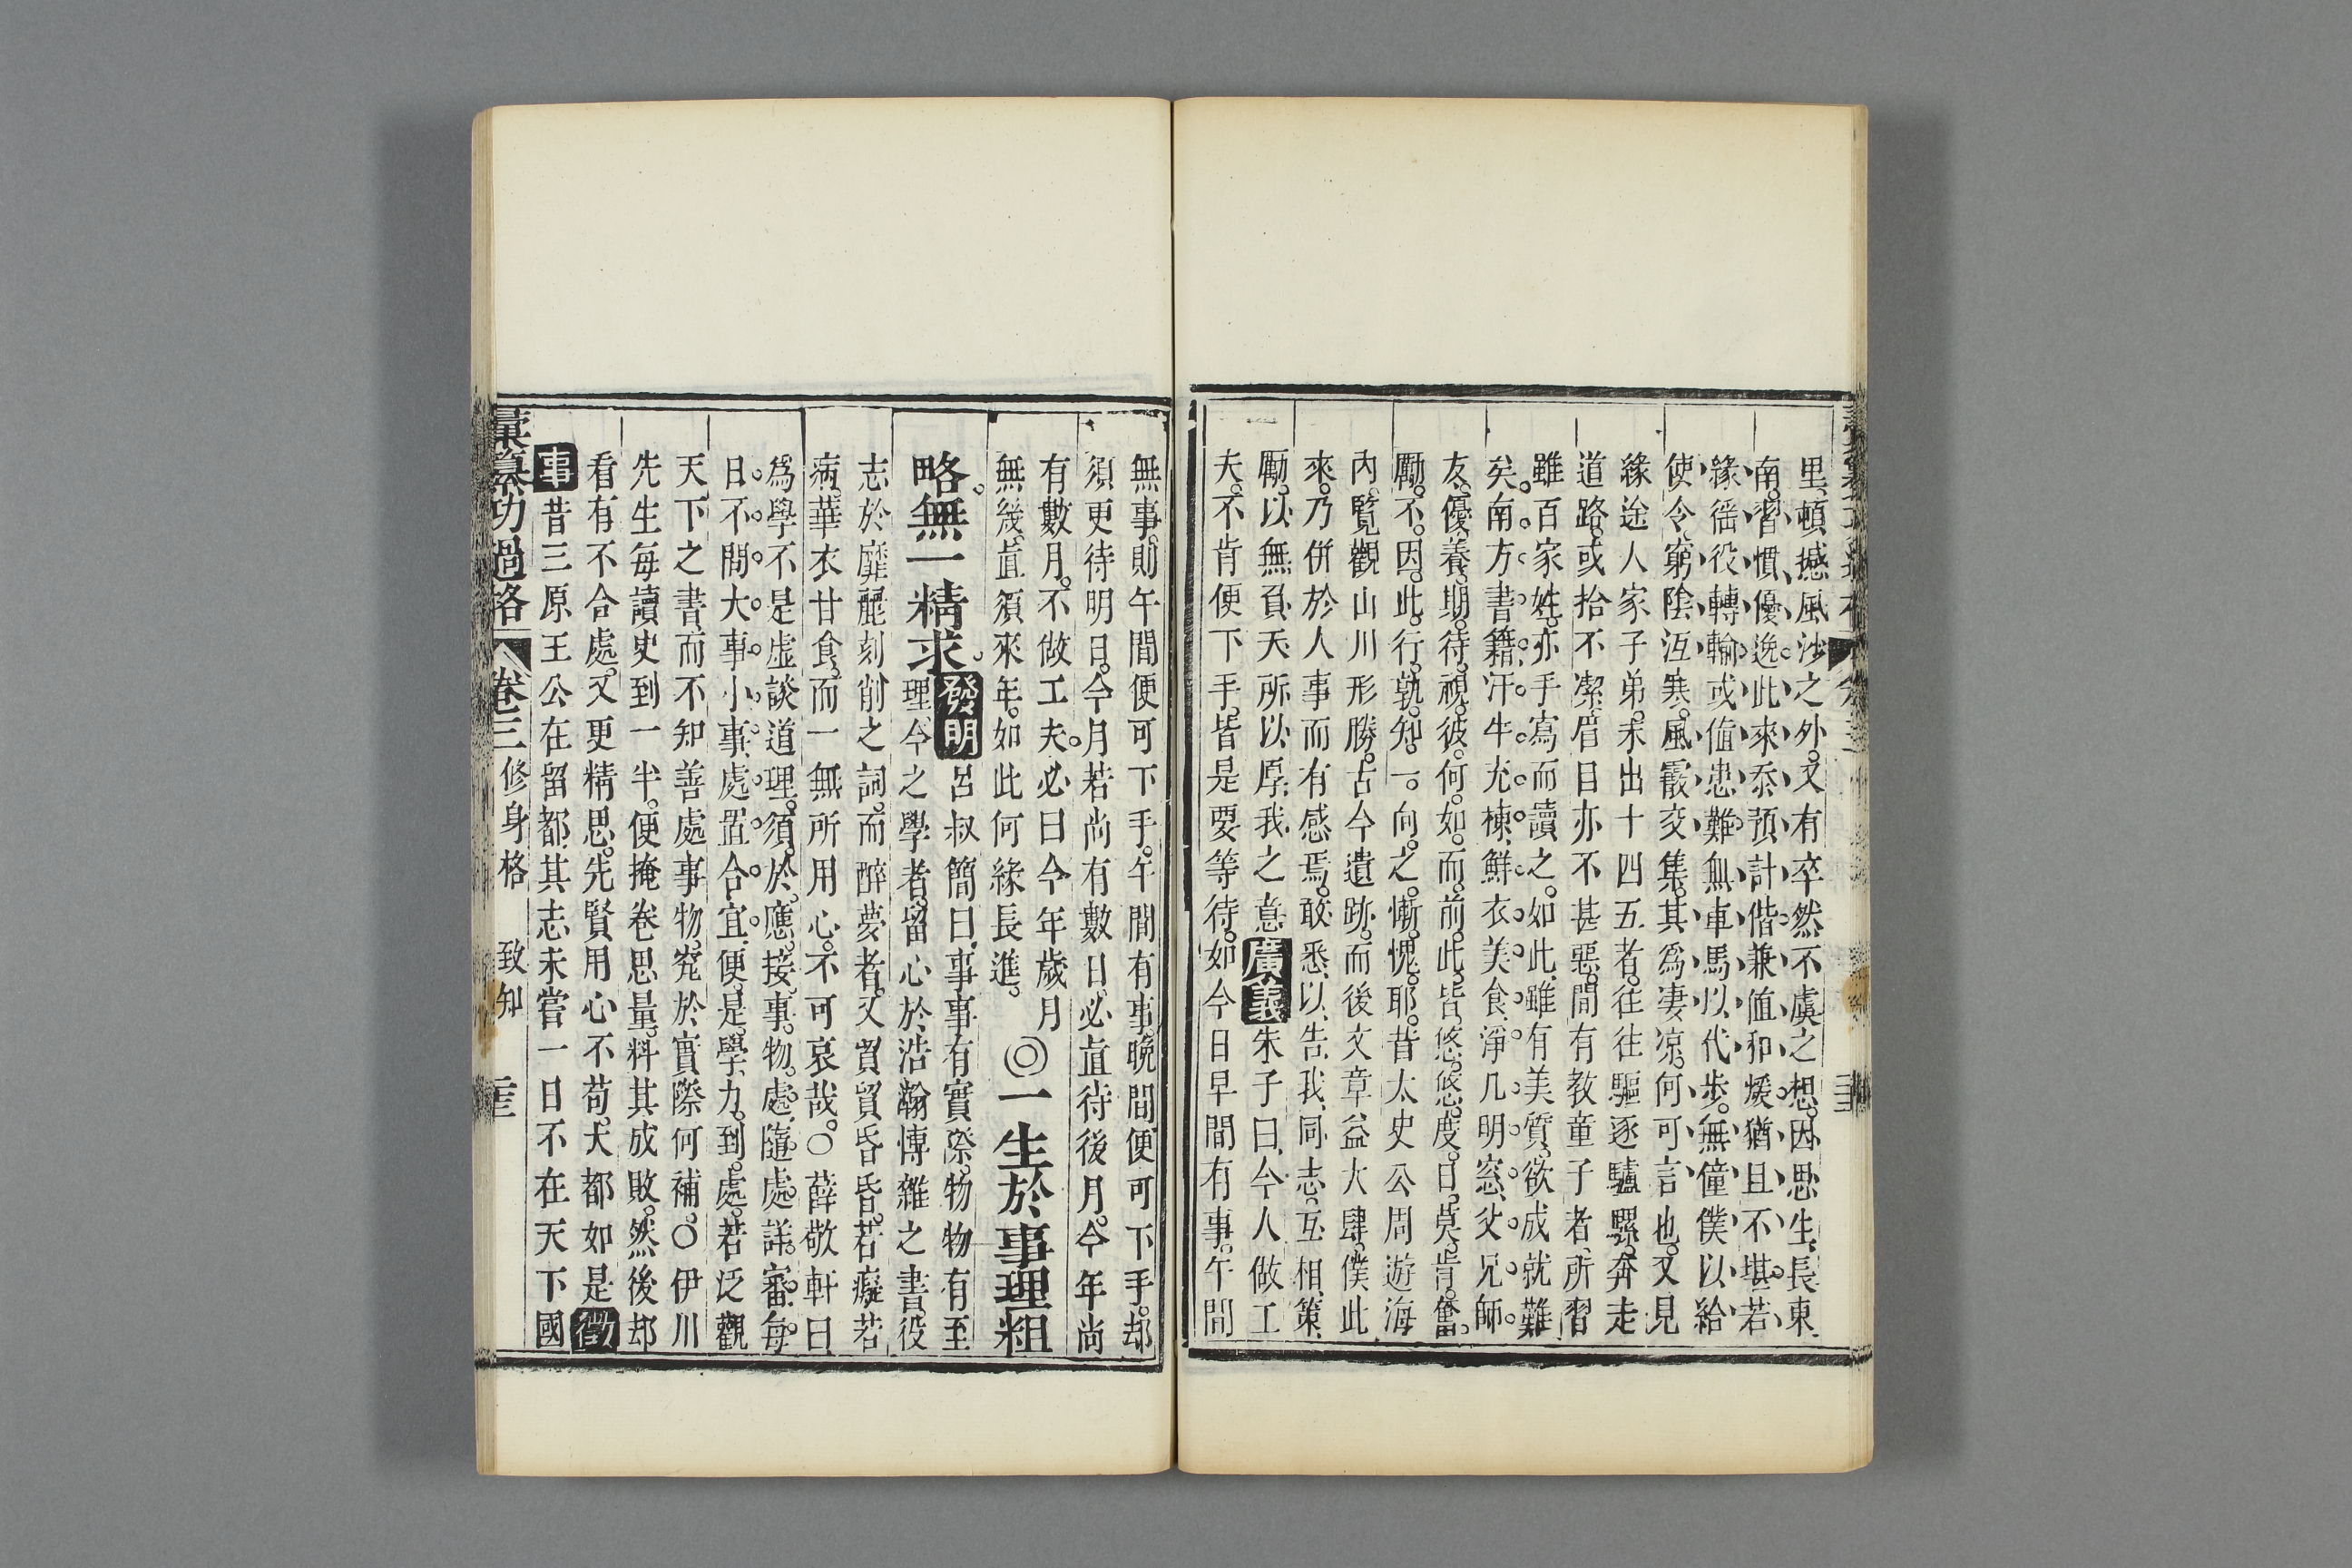 里、頓撼風沙之外。又有卒然不虞之想。因思生、長東
南。習慣優逸。此來忝預計偕。兼値和煖。猶且不堪。若
緣徭役轉輸。或値患難。無車馬以代步。無僮僕以給
使令。窮陰沍寒。風霰交集。其爲凄凉。何可言也。又見
緣途人家子弟。未出十四五者。往往驅逐驢騾。奔走
道路。或拾不潔。眉目亦不甚惡。間有教童子者、所習
雖百家姓。亦手寫而讀之。如此雖有美質、欲成就難
矣。南方書籍。汗牛充棟。鮮衣美食。淨几明窓。父兄師
友。優養期待。視彼何如。而前此皆悠悠度日。莫肯奮
勵。不因此行。孰知一向之慚愧耶。昔太史公周遊海
內。覽觀山川形勝。古今遺跡。而後文章益大肆。僕此
來。乃併於人事而有感焉。敢悉以告我同志。互相策
勵。以無負天所以厚我之意廣義朱子曰、今人做工
夫。不肯便下手。皆是要等待。如今日早間有事。午間
無事。則午間便可下手。午間有事。晚間便可下手。却
須更待明日。今月若尚有數日。必直待後月。今年尚
有數月。不做工夫。必曰今年歲月
無幾。直須來年。如此何緣長進。◎一生於事理粗
略。無一精求。發明呂叔簡曰、事事有實際。物物有至
理。今之學者。留心於浩瀚博雜之書。役
志於靡麗刻削之詞。而醉夢者。又貿貿昏昏。若癡若
病。華衣甘食。而一無所用心。不可哀哉。○薛敬軒曰、
爲學不是虛談道理。須於應接事物處。隨處詳審。每
日不問大事小事。處置合宜。便是學力到處。若泛觀
天下之書。而不知善處事物。究於實際何補。○伊川
先生每讀史到一半。便掩卷思量。料其成敗。然後却
看有不合處。又更精思。先賢用心不苟。大都如是徵
事昔三原王公在留都。其志未嘗一日不在天下國
彙纂功過格 卷三 修身格 致知 三